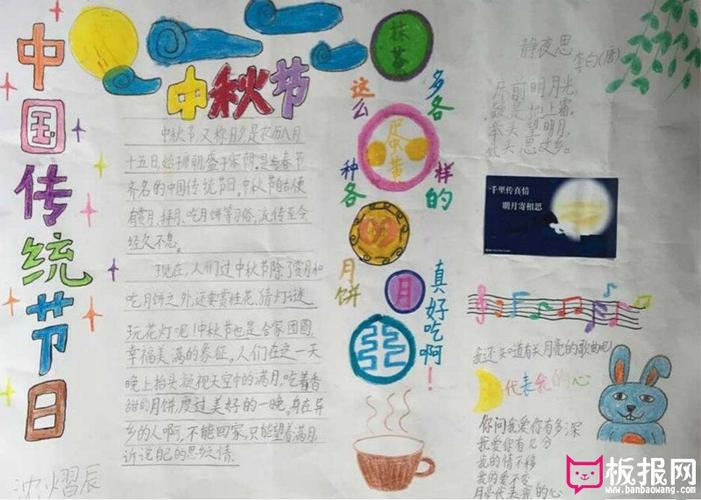 中国传统节日
中秋节
中秋节又称月夕是农历八月
十五日,始于唐朝盛于宋朝,是与春节
齐名的中国传统节日,中秋节自古便
有赏月、拜月、吃月饼等习俗,流传至今
经久不息。
现在,人们过中秋节除了赏月和
吃月饼之外,还要赏桂花、猜灯谜、
玩花灯呢!中秋节也是合家团圆
幸福美满的象征,人们在这一天
晚上抬头凝视天空中的满月,吃着香
甜的月饼,度过美好的一晚,身在异
乡的人啊,不能回家,只能望着满月
诉说自己的思乡之情。
沈熠辰
这么多各
种各样的
月饼
真好吃啊!
抹茶
蛋黄
月
静夜思
李白(唐)
床前明月光,
疑是地上霜。
举头望明月,
低头思故乡。
千里传真情
明月寄相思
我还知道有关月亮的歌曲呢!
代表我的心
你问我爱你有多深
我爱你有几分
我的情不移
我的爱不变
月亮代表我的心
板报网
www.banbaowang.com